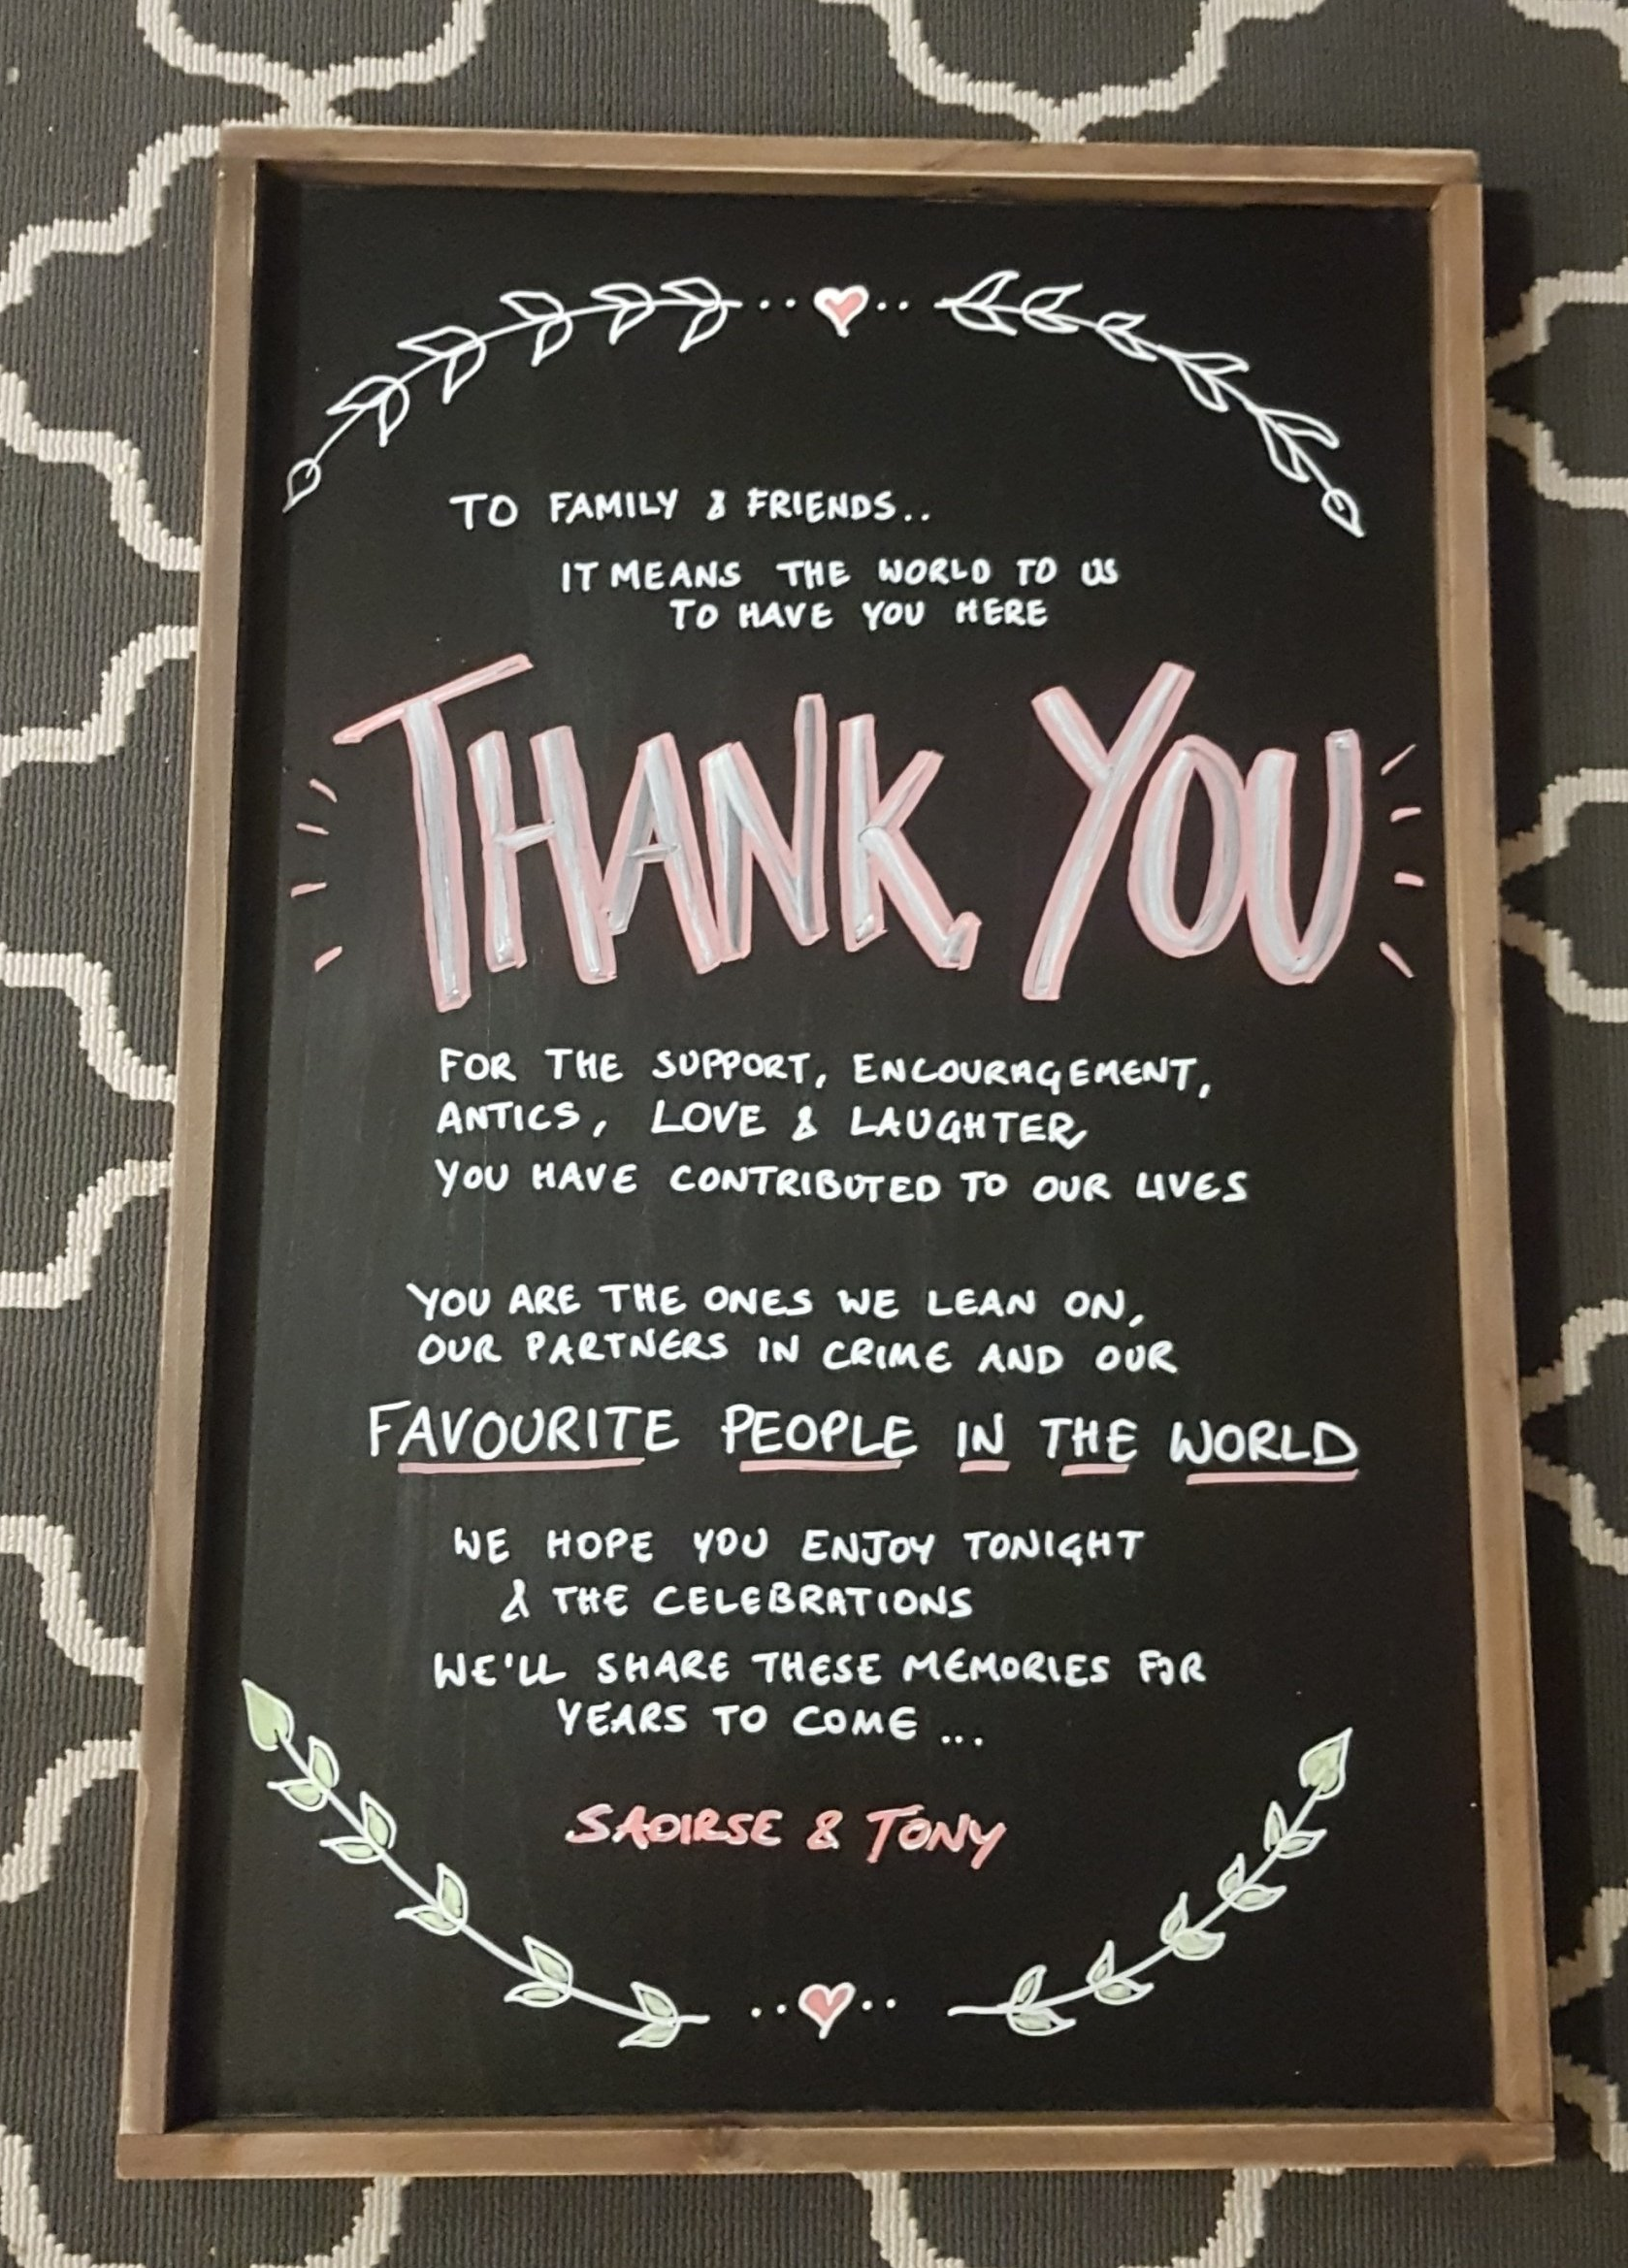 TO FAMILY & FRIENDS..
IT MEANS THE WORLD TO US
TO HAVE YOU HERE
THANK YOU
FOR THE SUPPORT, ENCOURAGEMENT,
ANTICS, LOVE & LAUGHTER
YOU HAVE CONTRIBUTED TO OUR LIVES
YOU ARE THE ONES WE LEAN ON,
OUR PARTNERS IN CRIME AND OUR
FAVOURITE PEOPLE IN THE WORLD
WE HOPE YOU ENJOY TONIGHT
& THE CELEBRATIONS
WE'LL SHARE THESE MEMORIES FOR
YEARS TO COME ...
SAOIRSE & TONY